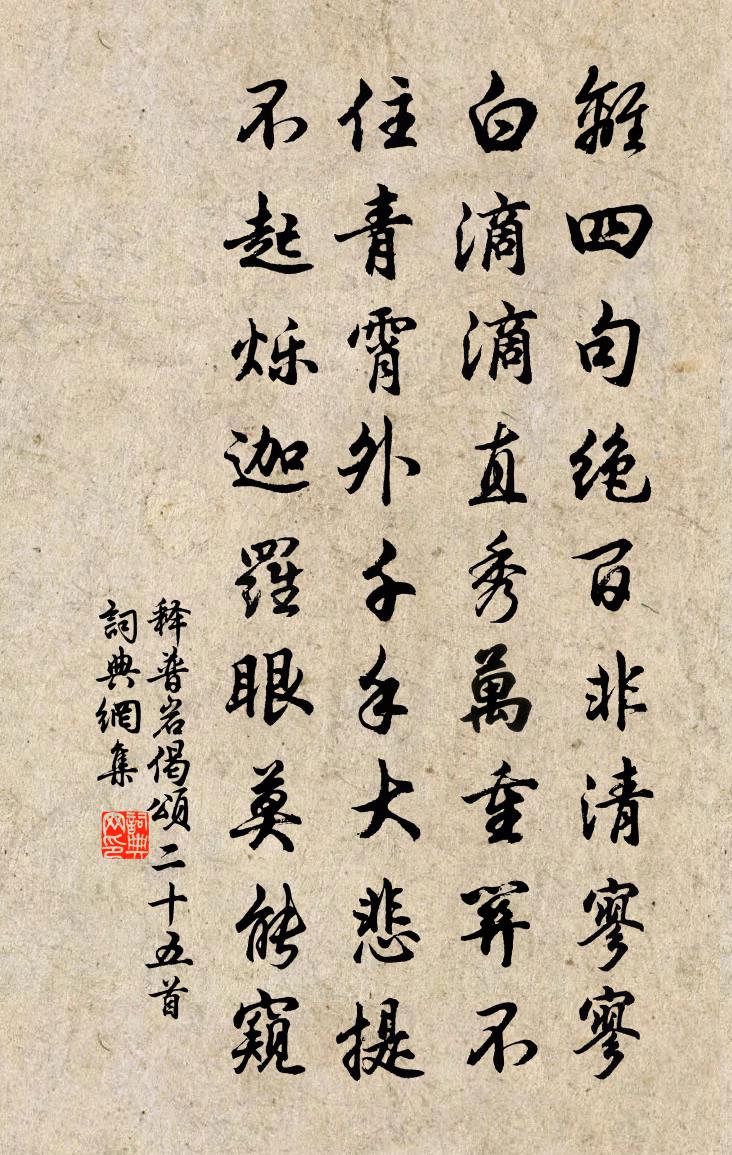 離四句絶百非清寥寥
白滴滴直秀萬重関不
住青霄外千手大悲提
不起烁迦羅眼莫能窺
释普岩偈頌二十五首
詞典網集
詞典网印